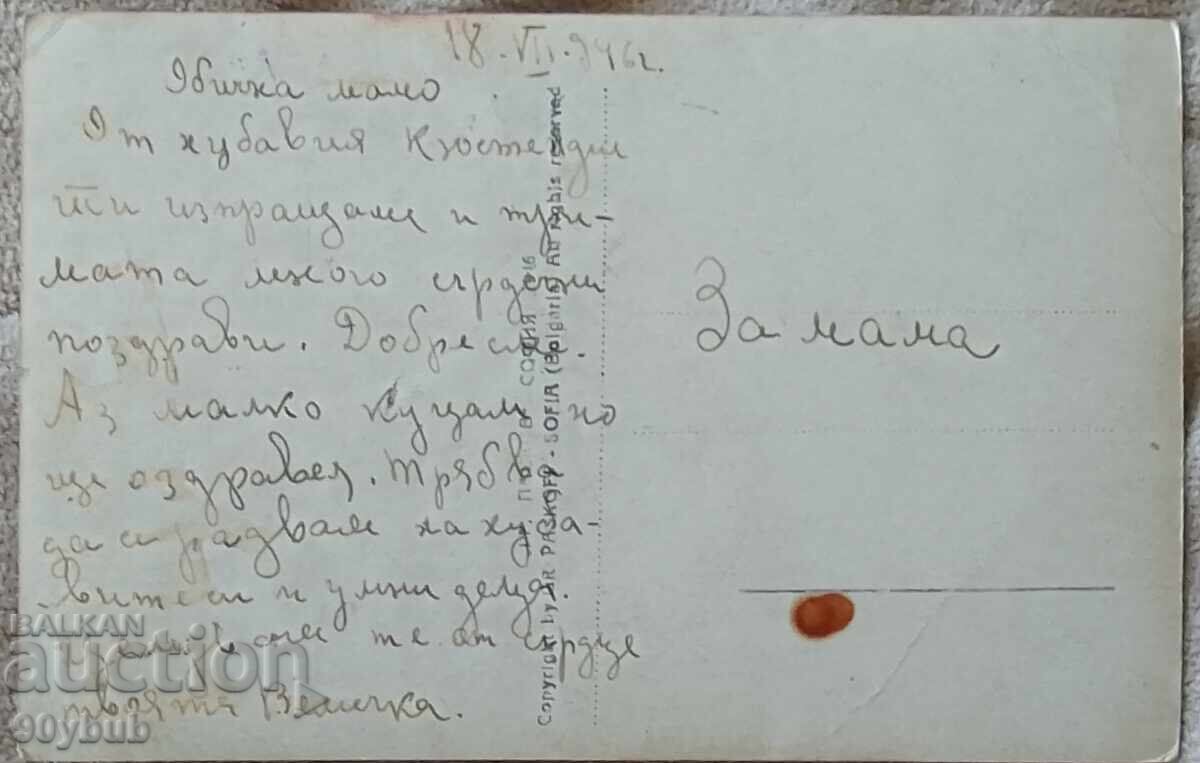 18.VII.946г.
Обичка мамо
От хубавия Кюстендил
ти изпращаме и три-
мата много сърдечни
поздрави. Добре сме.
Аз малко куцам но
ще оздравея. Трябва
да се радваш на хуба-
вите си и умни деца.
те от сърце
твоята Величка.
За мама
СОФИЯ
Copyright by AR PASKOFF - SOFIA (Bolgaria) All rights reserved
BALKAN
auction
90ybub